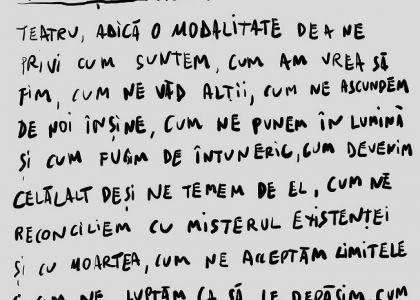 TEATRU, ADICĂ O MODALITATE DE A NE
PRIVI CUM SUNTEM, CUM AM VREA SĂ
FIM, CUM NE VĂD ALȚII, CUM NE ASCUNDEM
DE NOI ÎNȘINE, CUM NE PUNEM ÎN LUMINĂ
ȘI CUM FUGIM DE ÎNTUNERIC, CUM DEVENIM
CELĂLALT DEȘI NE TEMEM DE EL, CUM NE
RECONCILIEM CU MISTERUL EXISTENȚEI
ȘI CU MOARTEA, CUM NE ACCEPTĂM LIMITELE
CUM NE LUPTĂM CA SĂ LE DEPĂȘIM CUM